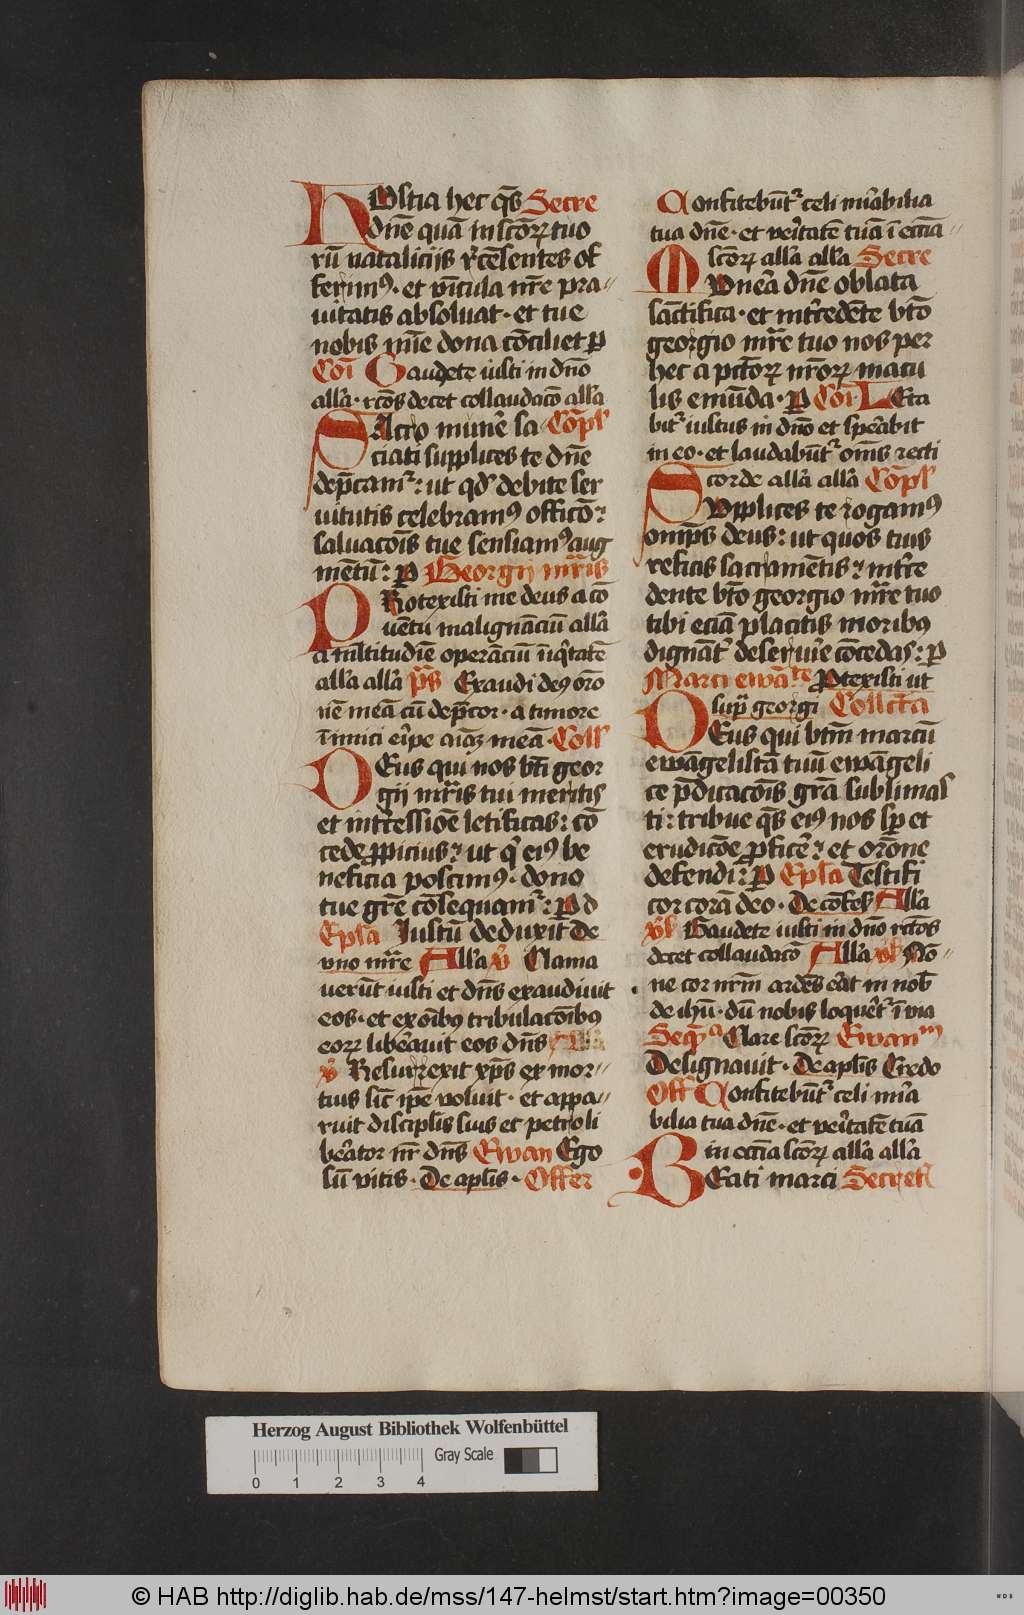 HOstia hec qs̄ Secre
dn̄e quā in sc̄oꝝ tuo
rū nataliciis rēcēsentes of
ferimꝰ · et vīcula nr̄e pra
uitatis absoluat · et tue
nobis mīe dona cōciliet ꝑ
Coī Gaudete iusti in dn̄o
all'a · rc̄os decet collaudacō all'a
SAcro munē sa Cōpl'
ciati supplices te dn̄e
dep̄camͬ : ut qd' debite ser
uitutis celebramꝰ officō :
saluacōis tue senciamꝰ aug
mētū : ꝑ Georgij mr̄is
PRotexisti me deus a cō
uētu malignāciū all'a
a m̄ltitudīe operāciū īiq̄tatē
all'a all'a p̄s Exaudi deꝰ oro
nē meā cū dep̄cor · a timore
īimici eīpe aīaꝫ meā · Coll'
DEus qui nos bt̄i geor
gij mr̄is tui meritis
et int̄cessiōe letificas : cō
cede ꝓpicius : ut q̄ eiꝰ be
neficia poscimꝰ · dono
tue gr̄e cōsequamͬ : ꝑ d
Epl'a Iustū deduxit De
vno mr̄e All'a v̄ Clama
uerūt iusti et dn̄s exaudiuit
eos · et ex oībꝰ tribulacōibꝰ
eoꝝ libēauit eos dn̄s
v̄ Resurrexit xp̄s ex mor
tuis sic̄ ip̄e voluit · et appa
ruit discipl'is suis et petro li
bēator nr̄ dn̄s Ewan Ego
sū vitis · De apl'is · Offer
Confitebūtͬ celi mīabilia
tua dn̄e · et ueritatē tuā ī eccīa
sc̄oꝝ all'a all'a Secre
MUnēa dn̄e oblata
sāctifica · et int̄cedēte bt̄o
georgio mr̄e tuo nos per
hec a pc̄toꝝ nr̄oꝝ macu
lis emūda · ꝑ Coī · LEta
bitͬ iustus in dn̄o et spērabit
in eo · et laudabūtͬ om̄s recti
corde all'a all'a Cōpl'
SUpplices te rogamꝰ
om̄ps deus : ut quos tuis
reficis sacramētis : int̄ce
dente bt̄o georgio mr̄e tuo
tibi eciā placitis moribꝰ
dignāt̄ deseruīe cōcedas : ꝑ
Marci ewāᵗᵉ Ꝓtexisti ut
sup̄ georgi Collc̄ta
DEus qui bt̄m marcū
ewāgelistā tuū ewāgeli
ce p̄dicacōis gr̄a sublimas
ti : tribue qs̄ eiꝰ nos sp̄ et
erudicōe ꝓficē : et orōne
defendi : ꝑ Epl'a Testifi
cor corā deo · De cōfes All'a
v̄s Gaudete iusti in dn̄o rc̄tos
decet collaudacō All'a v̄s Nō
ne cor nr̄m ardēs ērat in nob̄
de ihū · dū nobis loquētͬ ī via
Seqͣ Clare sc̄oꝝ Ewanᵐ
Designauit · De apl'is Credo
Off' Confitebūtͬ celi mīra
bilia tua dn̄e · et ueritatē tuā
in eccīa sc̄oꝝ all'a all'a
BEati marci Secret'
Herzog August Bibliothek Wolfenbüttel
Gray Scale
0 1 2 3 4
© HAB http://diglib.hab.de/mss/147-helmst/start.htm?image=00350